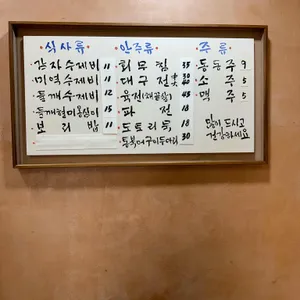 식사류
감자수제비 11
미역수제비 11
들깨수제비 12
들깨현미옹심이 15
보리밥 11
안주류
회무침 35
대구전 中 30 大 40
육전(채끝살) 45
파전 18
도토리묵 18
통북어구이두마리 30
주류
동동주 9
소주 5
맥주 5
많이 드시고
건강하세요